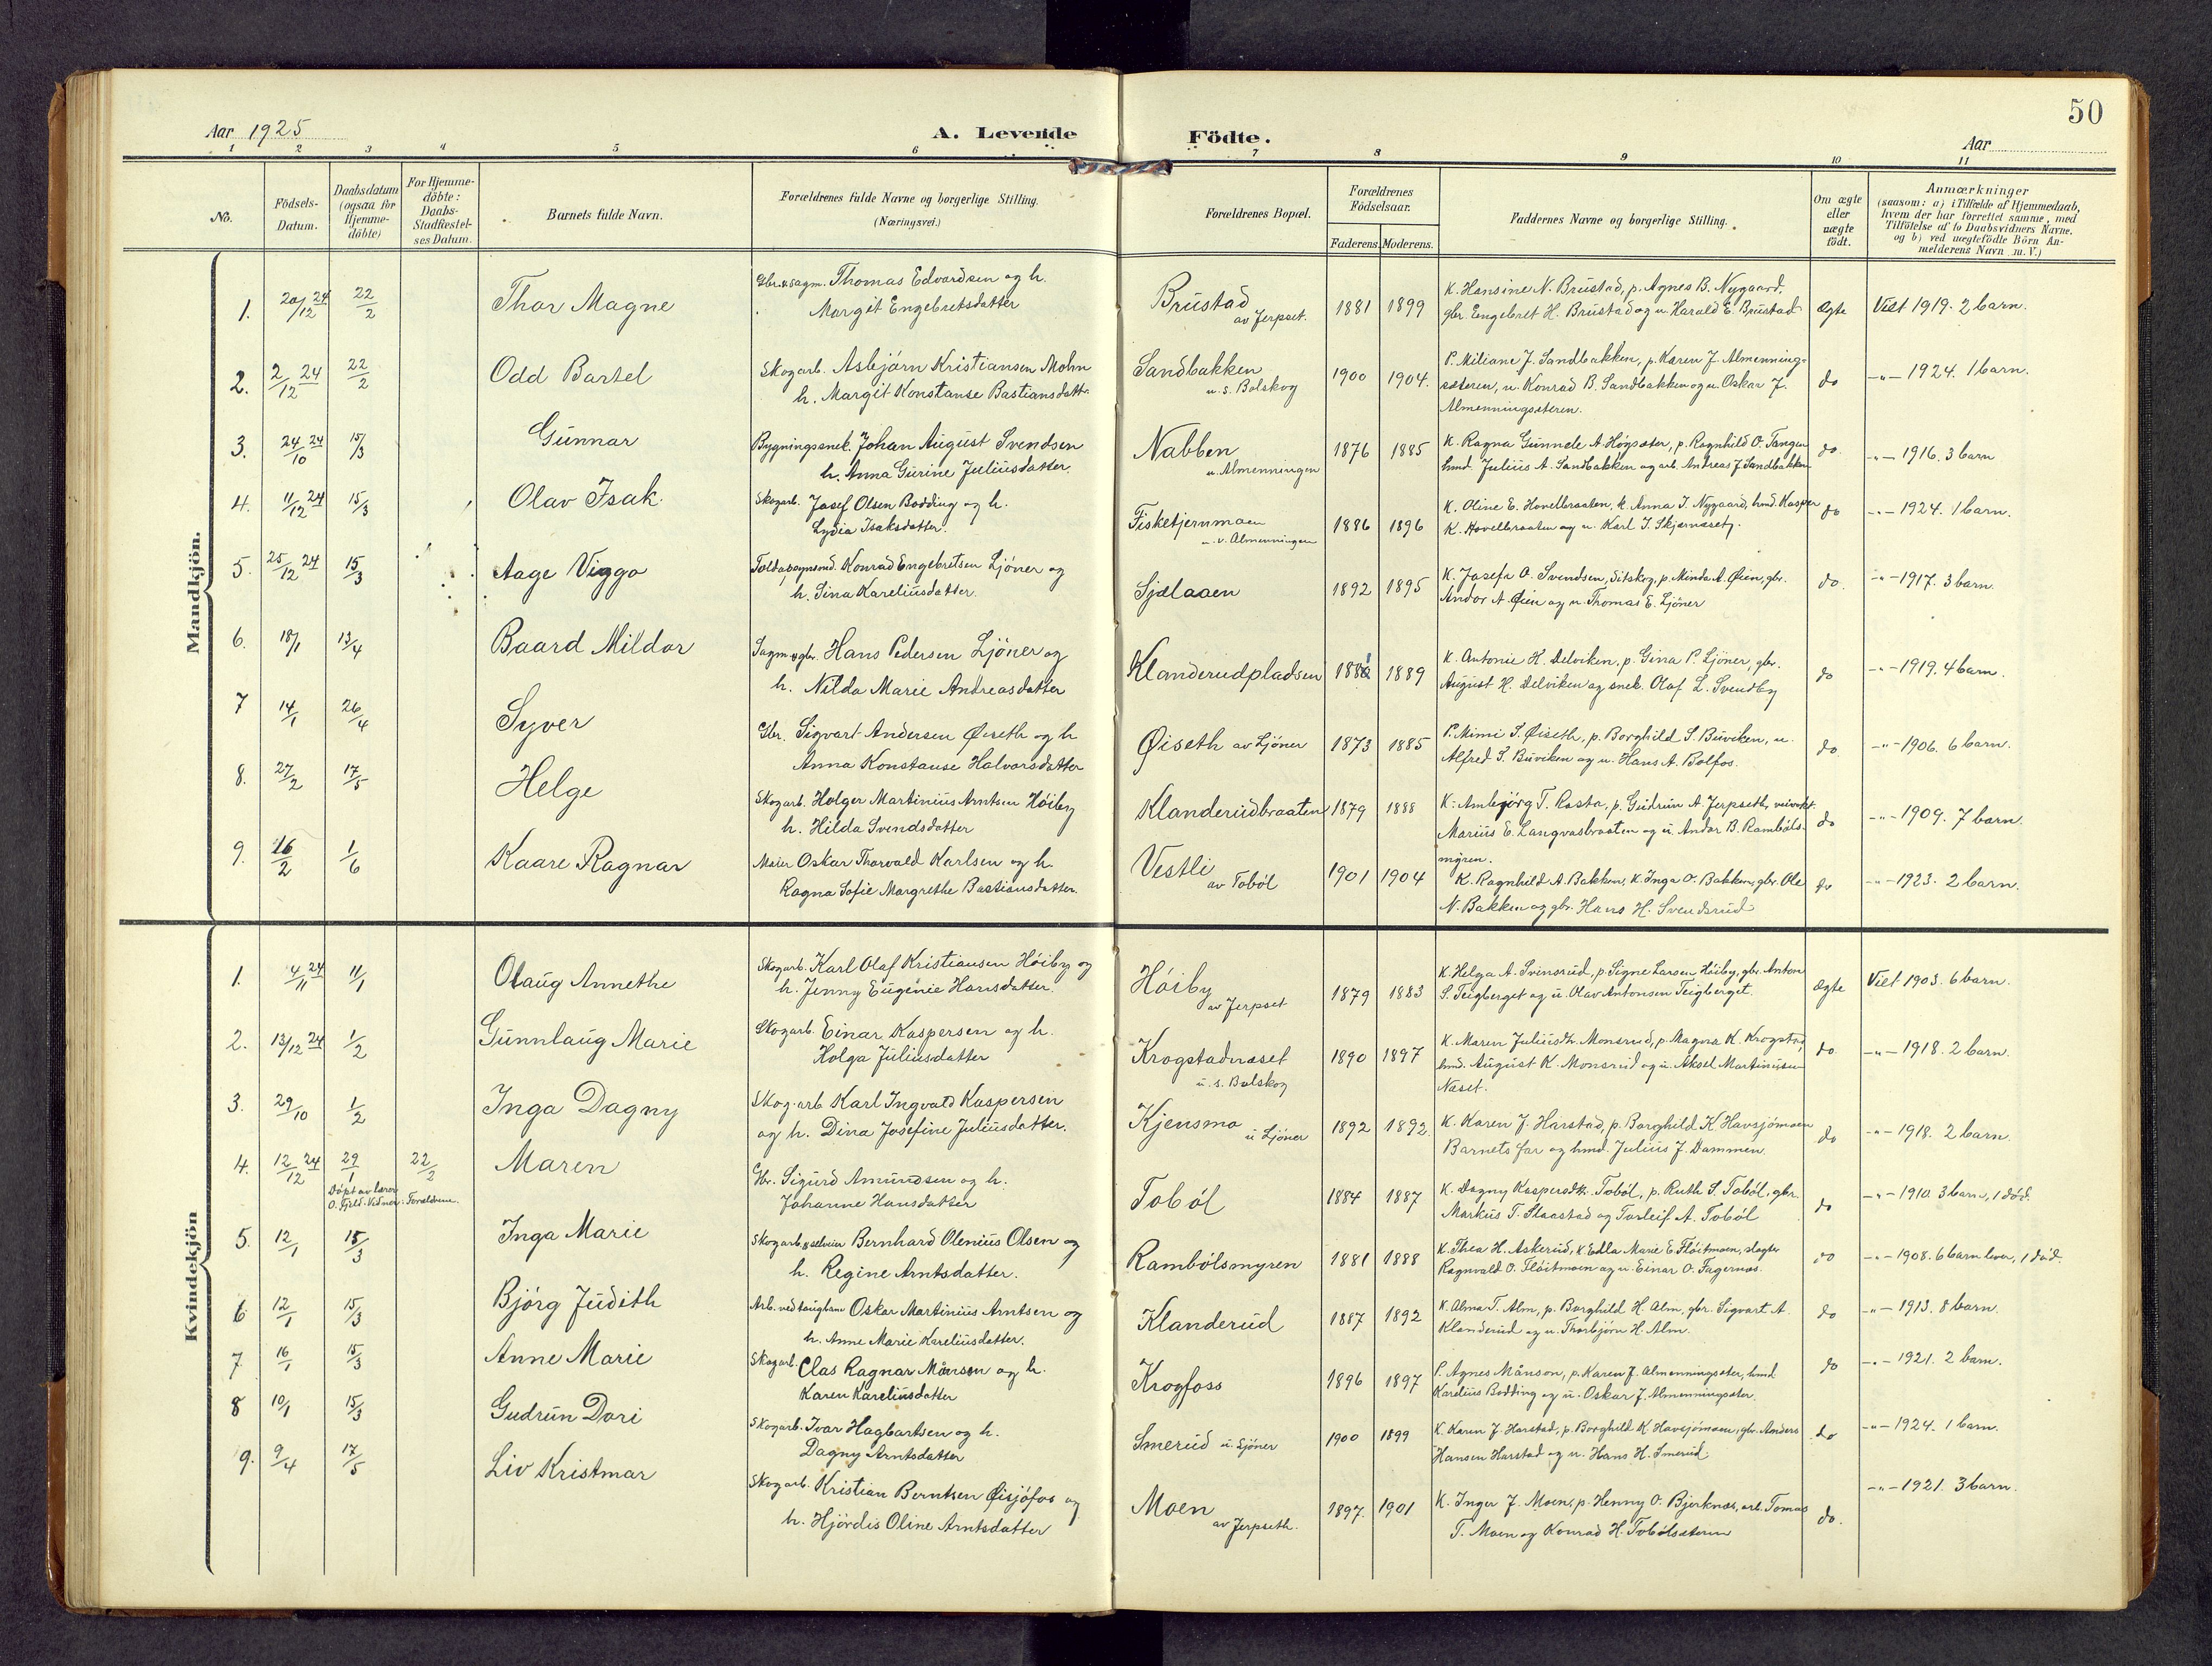 50
Aar 1925
A. Levende Födte.
Aar
1 2 3 4 5 6 7 8 9 10 11
No.
Födsels-Datum.
Daabsdatum (ogsaa for Hjemme-döbte)
For Hjemme-döbte: Daabs-Stadfæstel-ses Datum.
Barnets fulde Navn.
Forældrenes fulde Navne og borgerlige Stilling.
(Næringsvei.)
Forældrenes Bopæl.
Forældrenes Födselsaar.
Faderens. Moderens.
Faddernes Navne og borgerlige Stilling.
Om ægte eller uægte födt.
Anmærkninger
(saasom: a) i Tilfælde af Hjemmedaab,
hvem der har forrettet samme, med
Tilföielse af to Daabsvidners Navne.
og b) ved uægtefödte Börn An-
melderens Navn m. V.)
Mandkjön.
1. 20/12 24 22/2 Thor Magne
Gbr. & sagm. Thomas Edvardsen og h.
Margit Engebretsdatter
Brustad
av Jerpset.
1881 1899
K. Hansine N. Brustad, p. Agnes B. Nygaard,
gbr. Engebret H. Brustad og u. Harald E. Brustad
Ægte Viet 1919. 2 barn.
2. 2/12 24 22/2 Odd Bartel
Skogarb. Asbjørn Kristiansen Mohn
h. Margit Konstanse Bastiansdatt.
Sandbakken
u. s. Bolskog
1900 1904.
P. Miliane J. Sandbakken, p. Karen J. Almenning-
sæteren, u. Konrad B. Sandbakken og u. Oskar J.
Almenningsæteren.
do -"- 1924. 1 barn.
3. 24/10 24 15/3 Gunnar
Bygningssnek. Johan August Svendsen
h. Anna Gurine Juliusdatter.
Nabben
u. Almenningen
1876 1885
K. Ragna Gunnele A. Høgsæter, p. Ragnhild O. Tangen
hmd. Julius A. Sandbakken og arb. Andreas J. Sandbakken
do -"- 1916. 3 barn
4. 11/12 24 15/3 Olav Isak.
Skogarb. Josef Olsen Bødding og h.
Lydia Isaksdatter.
Fisketjernmoen
u. v. Almenningen
1886 1896
K. Oline E. Hovelbraaten, k. Anna I. Nygaard, hmd. Kasper
K. Hovelbraaten og u. Karl I. Skjørnæset.
do -"- 1924. 1 barn.
5. 25/12 24 15/3 Aage Viggo
Konrad Engebretsen Ljöner og
h. Sina Kareliusdatter.
Sjølaaen
1892 1895
K. Josefa O. Svendsen, Sitskog, p. Minda A. Øien, gbr.
Andor A. Øien og u. Thomas E. Ljöner
do. -"- 1917. 3 barn.
6. 18/1 13/4 Baard Mildor
Sagm. & gbr. Hans Pedersen Ljöner og
h. Nilda Marie Andreasdatter
Klanderudpladsen
1889
K. Antonie H. Delviken, p. Gina P. Ljöner, gbr.
August H. Delviken og snek. Olaf L. Svendby
do -"- 1919. 4 barn.
7 14/1 26/4 Syver
Gbr. Sigvart Andersen Øiseth og h
Anna Konstanse Halvorsdatter
Øiseth av Ljöner
1873 1885
P. Mimi S. Øiseth, p. Borghild S. Buviken, u.
Alfred S. Buviken og u. Hans A. Bolfos.
do. -"- 1906. 6 barn.
8. 27/2 17/5 Helge
Skogarb. Holger Martinius Arntsen Höiby
h. Hilda Svendsdatter
Klanderudbraaten
1879 1888
K. Ambjørg T. Rosta, p. Gudrun A. Jerpseth, veivokt.
Marius E. Langvasbraaten og u. Andor B. Rambøls-
myren.
do -"- 1909. 7 barn.
9. 16/2 1/6 Kaare Ragnar
Meier Oskar Thorvald Karlsen og h.
Ragna Sofie Margrethe Bastiansdatter.
Vestli
av Toböl
1901 1904
K. Ragnhild A. Bakken, k. Inga O. Bakken, gbr. Ole
N. Bakken og gbr. Hans H. Svendsrud
do -"- 1923. 2 barn.
Kvindekjön
1. 4/11 24 11/1 Olaug Annethe
Skogarb. Karl Olaf Kristiansen Höiby og
h. Jenny Eugenie Hansdatter.
Höiby
av Jerpset
1879 1883
K. Helga A. Svinsrud, p. Signe Larsen Höiby, gbr. Anton
S. Teigberget og u. Olav Antonsen Teigberget.
ægte Viet 1903. 6 barn.
2. 13/12 24 1/2 Gunnlaug Marie
Skogarb. Einar Kaspersen og h.
Helga Juliusdatter
Krogstadnæset
u. s. Bolskog
1890 1897
K. Maren Juliusdtr. Monsrud, p. Magna K. Krogstad,
hmd. August K. Monsrud og u. Aksel Martiniusen
Næset.
do -"- 1918. 2 barn.
3. 29/10 1/2 Inga Dagny
Skog.arb Karl Ingvald Kaspersen
og h. Dina Josefine Juliusdatter.
Kjensmo
u Ljöner
1892 1892.
K. Karen J. Harstad, p. Borghild K. Havsjömoen
Barnets far og hmd. Julius J. Dammen.
do -"- 1918. 2 barn.
4. 12/12 24 29/1 22/2 Maren
Döpt av lærer
O. Fjeld. Vidner: Forældrene.
Gbr. Sigurd Amundsen og h.
Johanne Hansdatter
Toböl
1884 1887
K. Dagny Kaspersdtr. Toböl, p. Ruth S. Toböl, gbr.
Markus T. Slaastad og Torleif A. Toböl
do -"- 1910. 3 barn, 1 död.
5. 12/1 15/3 Inga Marie
Skogarb. & selveier Bernhard Olenius Olsen og
h. Regine Arntsdatter.
Rambölsmyren
1881 1888
K. Thea H. Askerud, k Edla Marie E. Flöitmoen, slagter
Ragnvald O. Flöitmoen og u. Einar O. Fagernæs.
do -"- 1908. 6 barn lever, 1 död.
6 12/1 15/3 Björg Judith
Arb. ved taugban Oskar Martinius Arntsen og
h. Anne Marie Kareliusdatter.
Klanderud
1887 1892
K. Alma T. Alm, p. Borghild H. Alm, gbr. Sigvart A.
Klanderud og u. Thorbjörn H. Alm.
do -"- 1913. 8 barn.
7 16/1 15/3 Anne Marie
Skogarb. Clas Ragnar Månson og h.
Karen Kareliusdatter
Krogfoss
1896 1897
P. Agnes Månson, p. Karen J. Almenningsæter, hmd
Karelius Bodding og u. Oskar J. Almenningsæter.
do -"- 1921. 2 barn.
8 10/1 15/3 Gudrun Dori
Skogarb. Ivar Hagbartsen og h.
Dagny Arntsdatter
Smerud u. Ljöner
1900 1899
K. Karen J. Harstad, p. Borghild K Havsjömoen, gbr. Anders
Hansen Harstad og u. Hans H. Smerud.
do -"- 1924. 1 barn.
9. 9/4 17/5 Liv Kristmar
Skogarb. Kristian Berntsen Øisjöfos og
h. Hjördis Oline Arntsdatter
Moen
av Jerpseth.
1897. 1901
K. Inger J. Moen, p. Henny O. Bjerknæs, arb. Tomas
T. Moen og Konrad H. Tobölsæteren
do. -"- 1921. 3 barn.